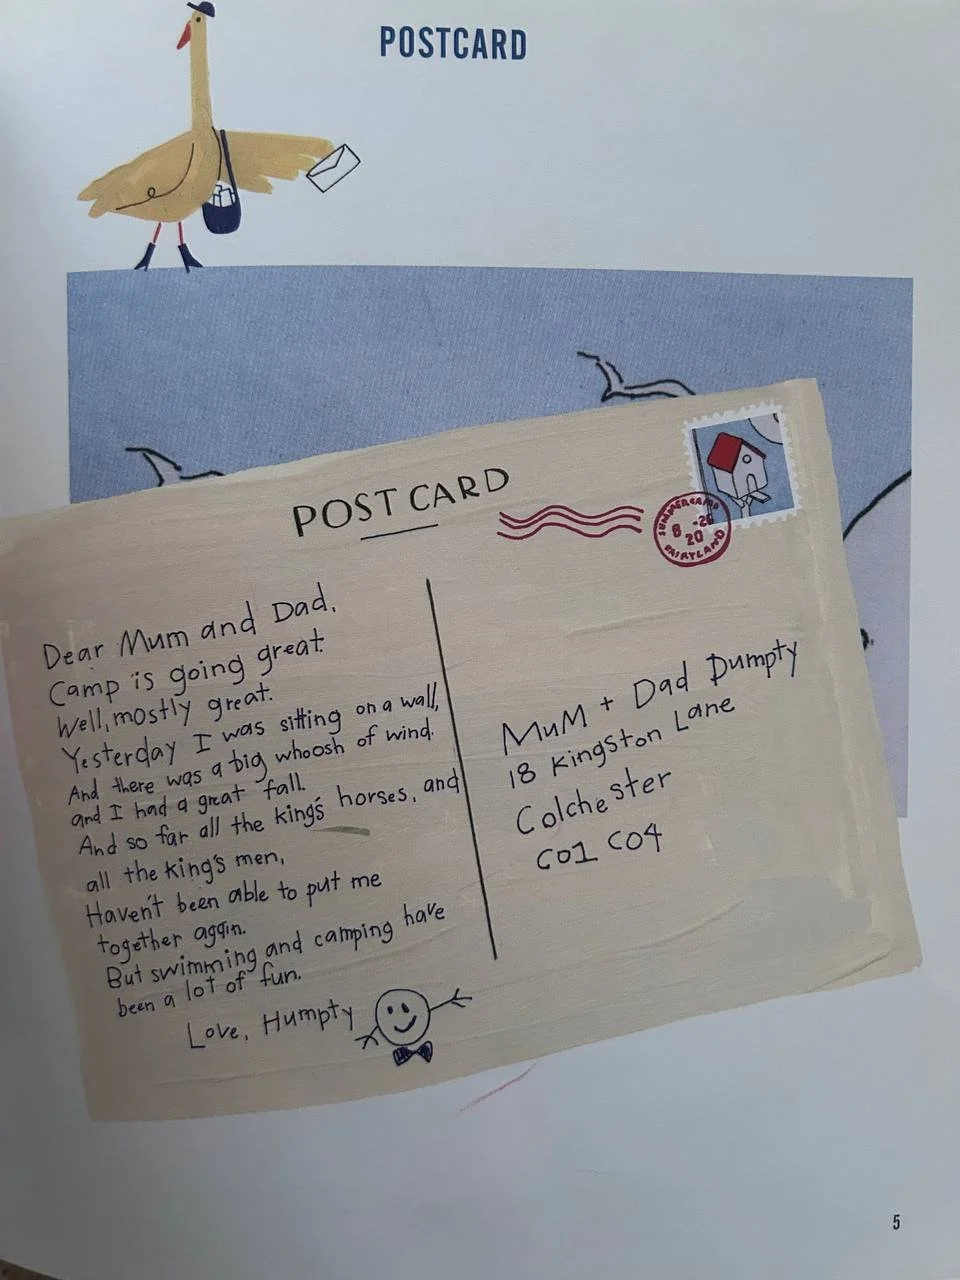 POSTCARD
POSTCARD
SUMMERCAMP
8 -26
20
FAIRYLAND
Dear Mum and Dad,
Camp is going great.
Well, mostly great.
Yesterday I was sitting on a wall,
And there was a big whoosh of wind.
and I had a great fall.
And so far all the king's horses, and
all the king's men,
Haven't been able to put me
together again.
But swimming and camping have
been a lot of fun.
Love, Humpty
MuM + Dad Dumpty
18 Kingston Lane
Colchester
CO1 CO4
5